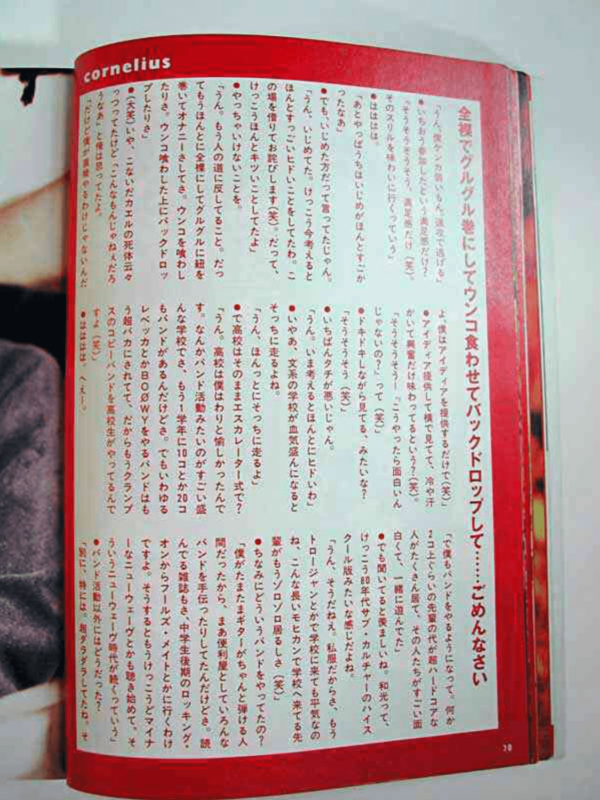 cornelius
全裸でグルグル巻にしてウンコ食わせてバックドロップして……ごめんなさい
「うん。僕ケンカ弱いもん。速攻で逃げる」
●いちおう参加したという満足感だけ？
「そうそうそうそう、満足感だけ（笑）。
そのスリルを味わいに行くっていう」
●ははははは。
「あとやっぱうちはいじめがほんとすごか
ったなあ」
●でも、いじめた方だって言ってたじゃん。
「うん。いじめてた。けっこう今考えると
ほんとすっごいヒドいことをしてたわ。こ
の場を借りてお詫びします（笑）。だって、
けっこうほんとキツいことしてたよ」
●やっちゃいけないことを。
「うん。もう人の道に反してること。だっ
てもうほんとに全裸にしてグルグルに紐を
巻いてオナニーさしてさ。ウンコを喰わし
たりさ。ウンコ喰わした上にバックドロッ
プしたりさ」
●（大笑）いや、こないだカエルの死体云々
っつってたけど、こんなもんじゃねぇだろ
うなあ」と俺は思ってたよ。
「だけど僕が直接やるわけじゃないんだ
よ、僕はアイディアを提供するだけで（笑）」
●アイディア提供して横で見てて、冷や汗
かいて興奮だけ味わってるという？（笑）
「そうそうそう！『こうやったら面白いん
じゃないの？』って（笑）」
●ドキドキしながら見てる、みたいな？
「そうそうそう（笑）」
●いちばんタチが悪いじゃん。
「うん。いま考えるとほんとにヒドいわ」
●いやあ、文系の学校が血気盛んになると
そっちに走るよね。
「うん。ほんっとにそっちに走るよ」
●で高校はそのままエスカレーター式で？
「うん。高校は僕はわりと愉しかったんで
す。なんかバンド活動みたいのがすごい盛
んな学校でさ、もう１学年に10コとか20コ
もバンドがあるんだけどさ。でもいわゆる
レベッカとかBOØWYをやるバンドはも
う超バカにされてて、だからもうクランプ
スのコピーバンドを高校生がやってるんで
すよ（笑）」
●はははは。へぇー。
「で僕もバンドをやるようになって。何か
２コ上ぐらいの先輩の代が超ハードコアな
人がたくさん居て、その人たちがすごい面
白くて、一緒に遊んでた」
●でも聞いてると羨ましいね。和光って、
けっこう60年代サブ・カルチャーのハイス
クール版みたいな感じだよね。
「うん、そうだねぇ。私服だからさ、もう
トロージャンとかで学校に来ても平気なの
ね、こんな長いモヒカンで学校へ来てる先
輩がもうゾロゾロ居るしさ（笑）」
●ちなみにどういうバンドをやってたの？
「僕がたまたまギターがちゃんと弾ける人
間だったから、まあ便利屋としていろんな
バンドを手伝ったりしてたんだけどさ。読
んでる雑誌もさ、中学生後期のロッキング・
オンからフールズ・メイトとかに行くわけ
ですよ。そうするともうけっこうどマイナ
ーなニューウェーヴとかも聴き始めて。そ
ういうニューウェーヴ時代が続くっていう」
●バンド活動以外にはどうだった？
「別に、特には。超ダラダラしてたね。そ